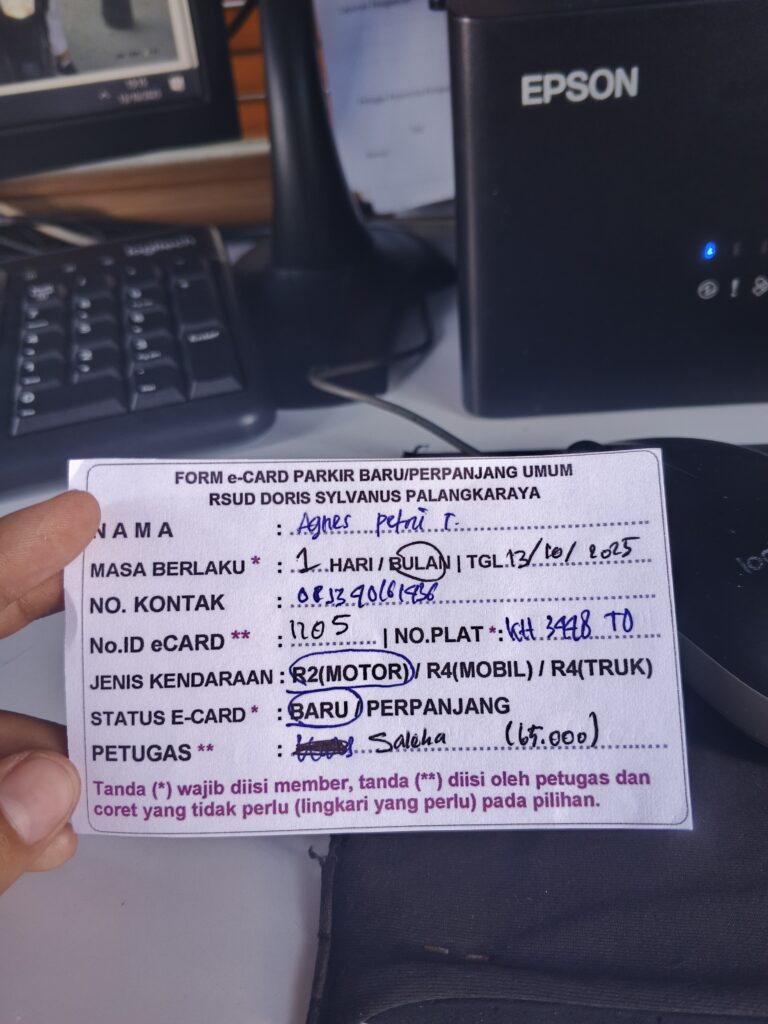 EPSON
logitech
FORM e-CARD PARKIR BARU/PERPANJANG UMUM
RSUD DORIS SYLVANUS PALANGKARAYA
N A M A : Agnes Petri T.
MASA BERLAKU * : 1 HARI / BULAN | TGL. 13/10/2025
NO. KONTAK :
No.ID eCARD ** : 1205 | NO.PLAT *: KH 3448 TO
JENIS KENDARAAN : R2(MOTOR) / R4(MOBIL) / R4(TRUK)
STATUS E-CARD * : BARU / PERPANJANG
PETUGAS ** : Saleha (65.000)
Tanda (*) wajib diisi member, tanda (**) diisi oleh petugas dan
coret yang tidak perlu (lingkari yang perlu) pada pilihan.